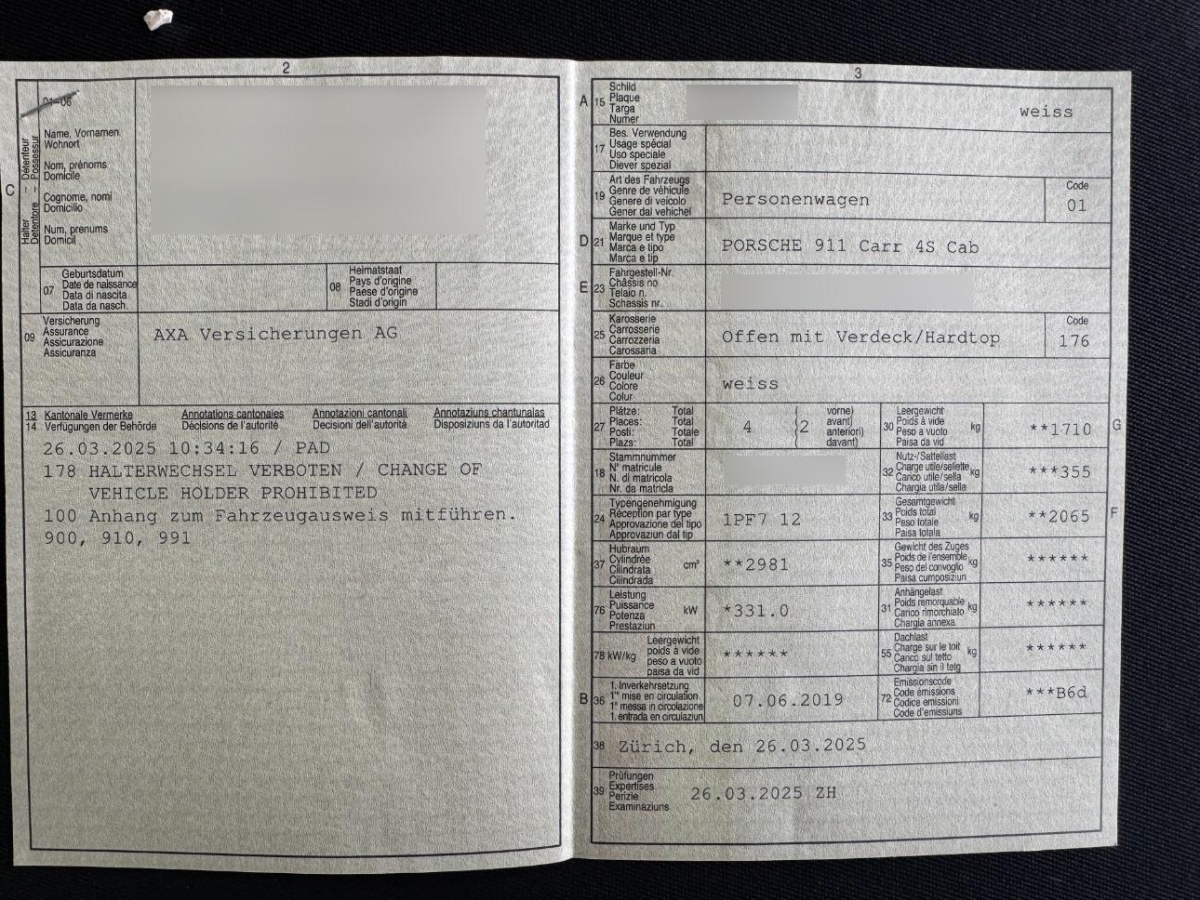 2
01-06
C
Halter - Détenteur
Detentore - Possessur
Name, Vornamen
Wohnort
Nom, prénoms
Domicile
Cognome, nomi
Domicilio
Num, prenums
Domicil
07
Geburtsdatum
Date de naissance
Data di nascita
Data da nasch.
08
Heimatstaat
Pays d'origine
Paese d'origine
Stadi d'origin
09
Versicherung
Assurance
Assicurazione
Assicuranza
AXA Versicherungen AG
13 Kantonale Vermerke Annotations cantonales Annotazioni cantonali Annotaziuns chantunalas
14 Verfügungen der Behörde Décisions de l'autorité Decisioni dell'autorità Disposiziuns da l'autoritad
26.03.2025 10:34:16 / PAD
178 HALTERWECHSEL VERBOTEN / CHANGE OF
VEHICLE HOLDER PROHIBITED
100 Anhang zum Fahrzeugausweis mitführen.
900, 910, 991
3
A 15
Schild
Plaque
Targa
Numer
weiss
17
Bes. Verwendung
Usage spécial
Uso speciale
Diever spezial
19
Art des Fahrzeugs
Genre de véhicule
Genere di veicolo
Gener dal vehichel
Personenwagen
Code
01
D 21
Marke und Typ
Marque et type
Marca e tipo
Marca e tip
PORSCHE 911 Carr 4S Cab
E 23
Fahrgestell-Nr.
Châssis no
Telaio n.
Schassis nr.
25
Karosserie
Carrosserie
Carrozzeria
Carossaria
Offen mit Verdeck/Hardtop
Code
176
26
Farbe
Couleur
Colore
Colur
weiss
27
Plätze: Total
Places: Total
Posti: Totale
Plazs: Total
4
(2
vorne)
avant)
anteriori)
davant)
30
Leergewicht
Poids à vide
Peso a vuoto
Paisa da vid
kg
**1710
G
18
Stammnummer
N° matricule
N. di matricola
Nr. da matricla
32
Nutz-/Sattellast
Charge utile/sellette
Carico utile/sella
Chargia utila/sella
kg
***355
24
Typengenehmigung
Réception par type
Approvazione del tipo
Approvaziun dal tip
1PF7 12
33
Gesamtgewicht
Poids total
Peso totale
Paisa totala
kg
**2065
F
37
Hubraum
Cylindrée
Cilindrata
Cilindrada
cm³
**2981
35
Gewicht des Zuges
Poids de l'ensemble
Peso del convoglio
Paisa cumposiziun
kg
******
76
Leistung
Puissance
Potenza
Prestaziun
kW
*331.0
31
Anhängelast
Poids remorquable
Carico rimorchiato
Chargia annexa
kg
******
78 kW/kg
Leergewicht
poids à vide
peso a vuoto
paisa da vid
******
55
Dachlast
Charge sur le toit
Carico sul tetto
Chargia sin il tetg
kg
******
B 36
1. Inverkehrsetzung
1re mise en circulation
1a messa in circolazione
1. entrada en circulaziun
07.06.2019
72
Emissionscode
Code émissions
Codice emissioni
Code d'emissiuns
***B6d
38
Zürich, den 26.03.2025
39
Prüfungen
Expertises
Perizie
Examinaziuns
26.03.2025 ZH